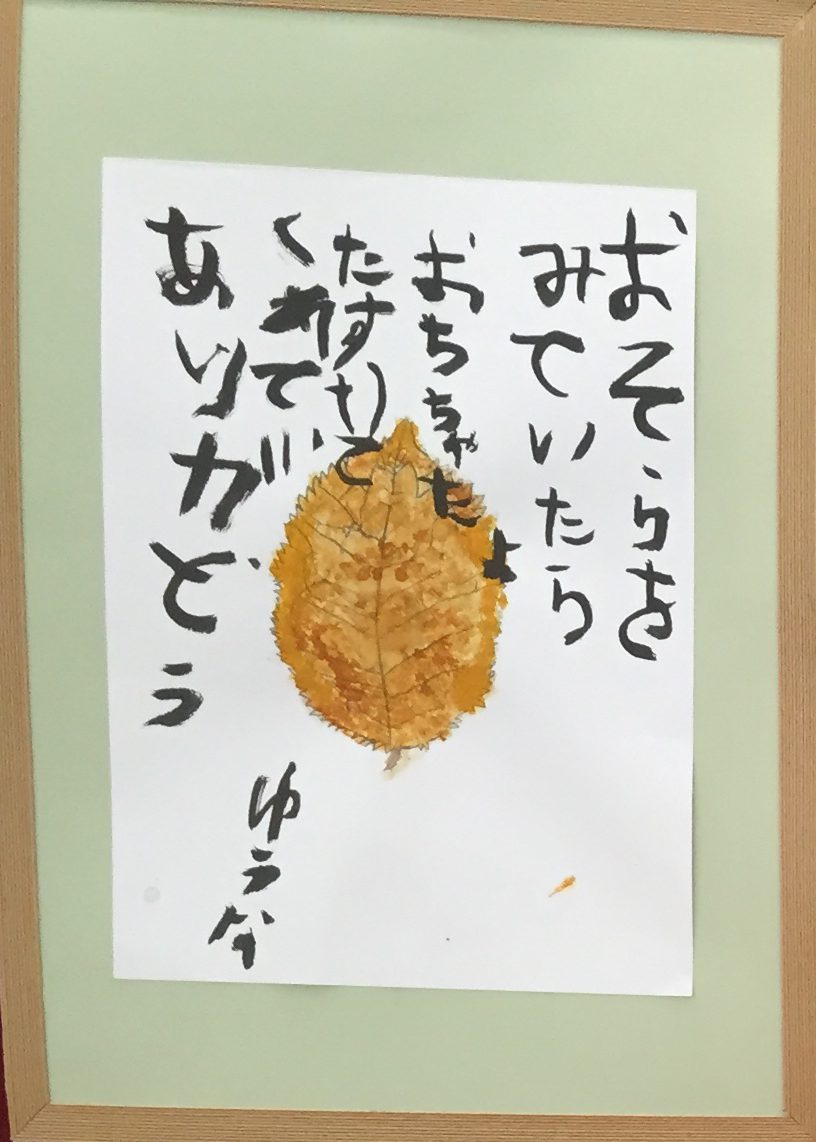 おそらを
みていたら
おちちゃたよ
たすけて
くれて
ありがどう
ゆうな